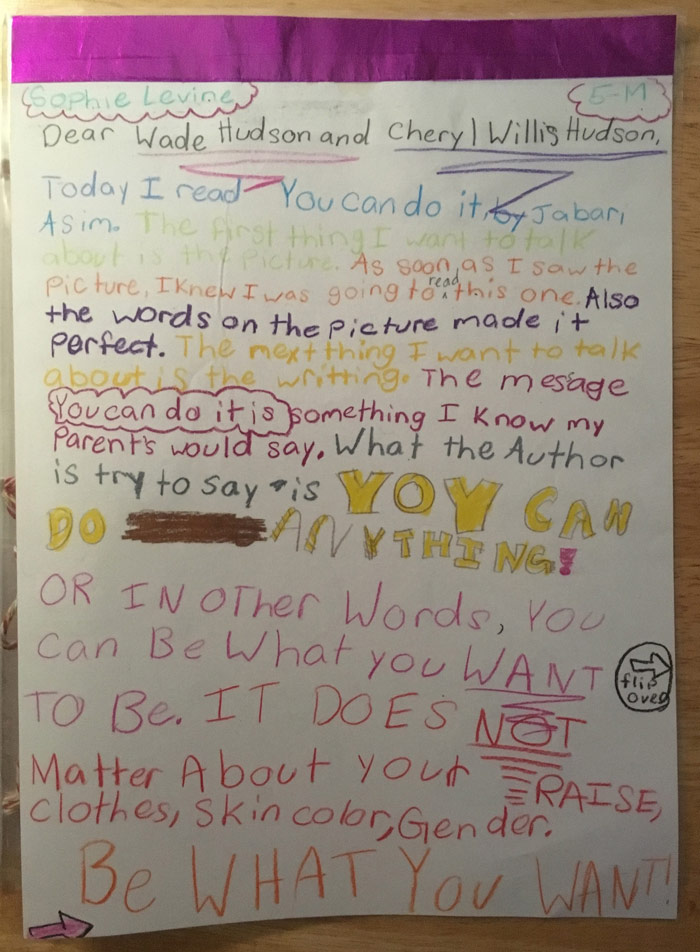 Sophie Levine 5-M
Dear Wade Hudson and Cheryl Willis Hudson,
Today I read You can do it, by Jabari
Asim. The first thing I want to talk
about is the picture. As soon as I saw the
picture, I knew I was going to read this one. Also
the words on the picture made it
perfect. The next thing I want to talk
about is the writting. The mesage
You can do it is something I know my
Parent's would say. What the Author
is try to say is YOY CAN
DO ANYTHING!
OR IN OTher Words, YOU
Can Be What you WANT
flip
over
TO Be. IT DOES NOT
Matter About your RAISE,
clothes, Skin color, Gender.
Be WHAT YOU WANT!